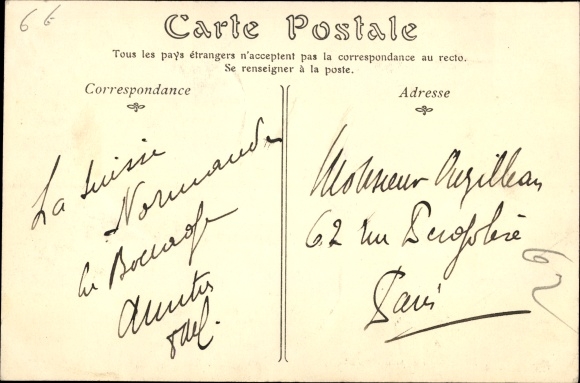 66
Carte Postale
Tous les pays étrangers n'acceptent pas la correspondance au recto.
Se renseigner à la poste.
Correspondance
La Suisse
Normande
Le Bocage
Adresse
Monsieur
62 rue Pergolèse
Paris
62